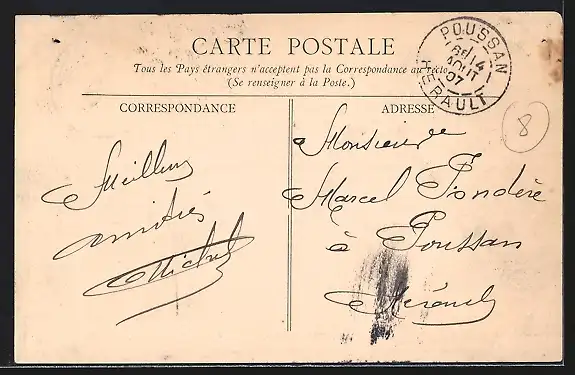 CARTE POSTALE
Tous les Pays étrangers n'acceptent pas la Correspondance au recto
(Se renseigner à la Poste.)
CORRESPONDANCE
Meilleures
amitiés
Michel
ADRESSE
Monsieur
Marcel Fondère
à Poussan
Hérault
POUSSAN
14
AOUT
07
HERAULT
8